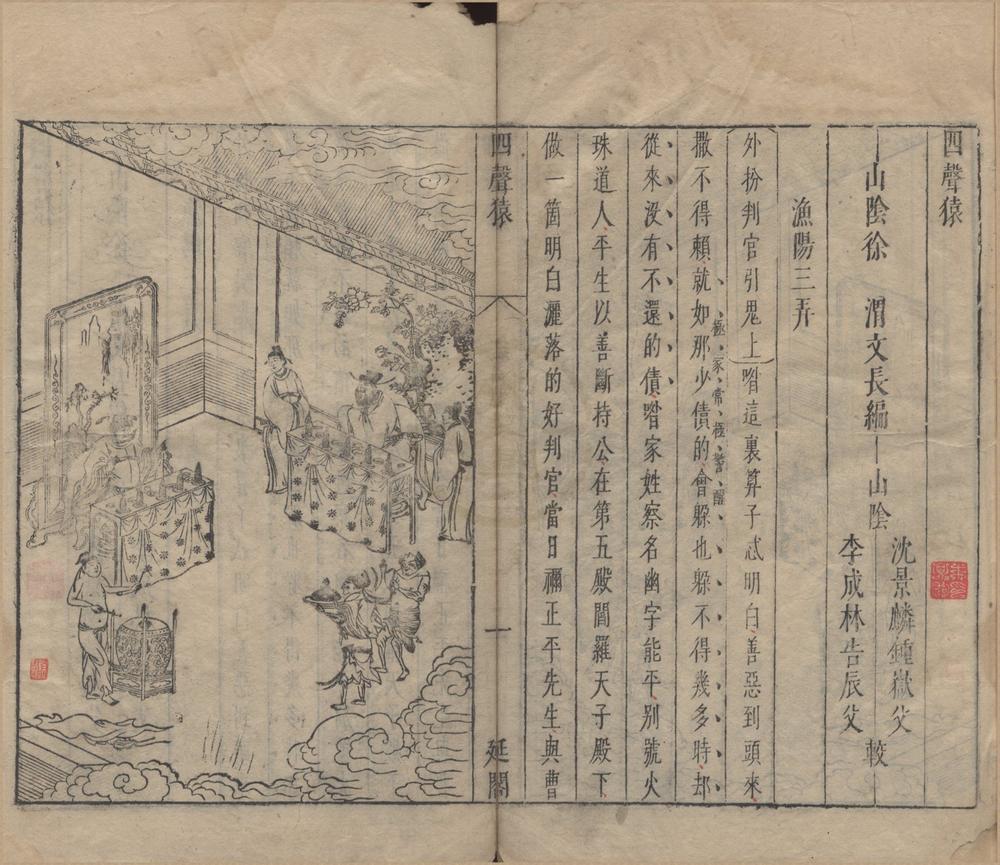 四聲猿
山陰徐　渭文長編　山陰
沈景麟鍾嶽父
李成林告辰父
較
漁陽三弄
外扮判官引鬼上喒這裏算子忒明白善惡到頭來
撒不得賴就如那少債的會躲也躲不得幾多時却
極家常極警醒
從來没有不還的債喒家姓察名幽字能平别號火
珠道人平生以善斷持公在第五殿閻羅天子殿下
做一箇明白灑落的好判官當日禰正平先生與曹
四聲猿
一
延閣